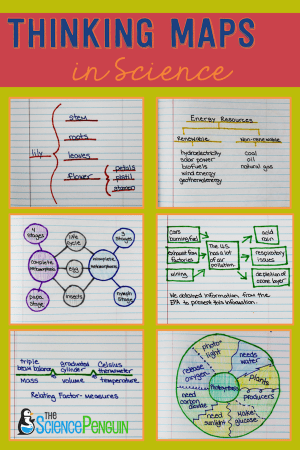 THINKING MAPS
in Science
lily
stem
roots
leaves
flower
petals
pistil
stamen
Energy Resources
Renewable
Non-renewable
hydroelectricity
solar power
biofuels
wind energy
geothermal energy
coal
oil
natural gas
4
stages
life
cycle
3
stages
complete
metamorphosis
egg
incomplete
metamorphosis
pupa
stage
insects
nymph
stage
cars
burning fuel
exhaust from
factories
mining
The U.S.
has a lot
of air
pollution.
acid
rain
respiratory
issues
depletion of
ozone layer
We collected information from the
EPA to present this information.
triple
beam balance
graduated
cylinder
Celsius
thermometer
mass
volume
temperature
Relating Factor- measures
photo-
light
needs
water
release
oxygen
plants
Photosynthesis
producers
need
carbon
dioxide
need
sunlight
make
glucose
THE
SCIENCEPENGUIN